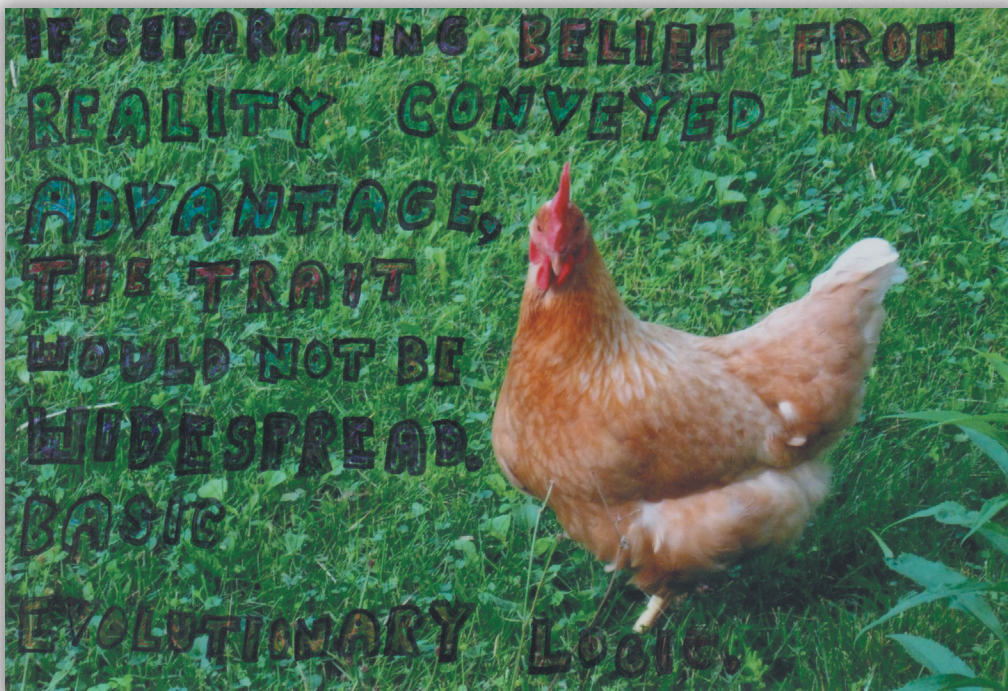 IF SEPARATING BELIEF FROM
REALITY CONVEYED NO
ADVANTAGE,
THE TRAIT
WOULD NOT BE
WIDESPREAD.
BASIC
EVOLUTIONARY LOGIC.